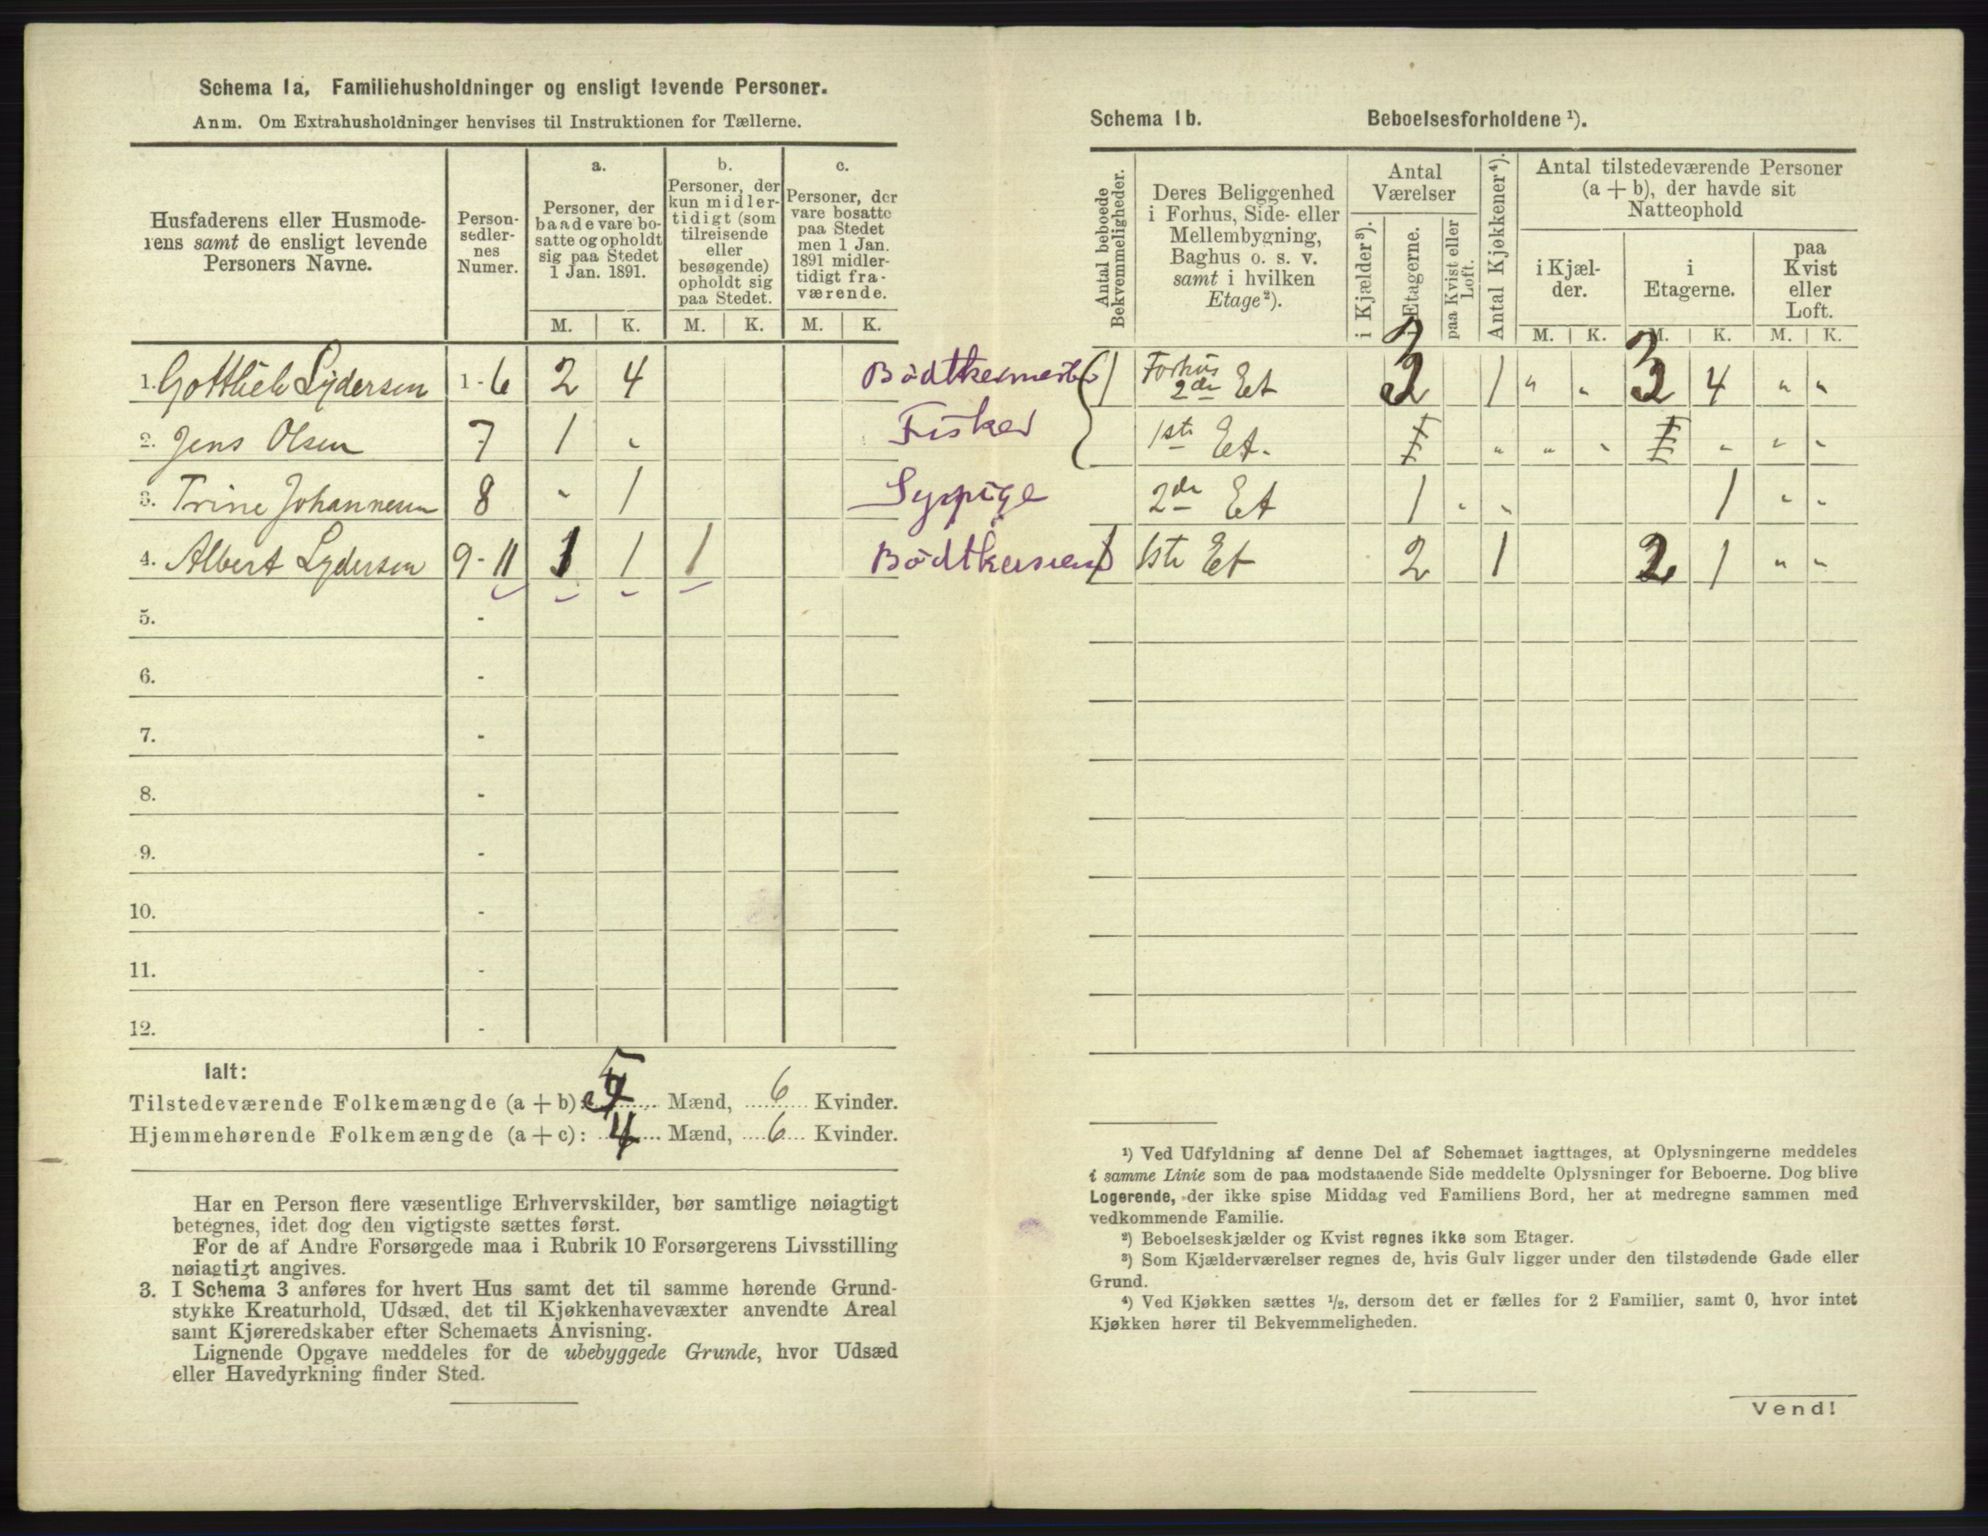 Schema 1a, Familiehusholdninger og ensligt levende Personer.
Anm. Om Extrahusholdninger henvises til Instruktionen for Tællerne.
Husfaderens eller Husmode-
rens samt de ensligt levende
Personers Navne.
Person-
sedler-
nes
Numer.
a.
Personer, der
baade vare bo-
satte og opholdt
sig paa Stedet
1 Jan. 1891.
b.
Personer, der
kun midler-
tidigt (som
tilreisende
eller
besøgende)
opholdt sig
paa Stedet.
c.
Personer, der
vare bosatte
paa Stedet
men 1 Jan.
1891 midler-
tidigt fra-
værende.
M. K. M. K. M. K.
1. Gottlieb Lydersen 1-6 2 4 Bödtkermester
2. Jens Olsen 7 1 " Fisker
3. Trine Johannesen 8 " 1 Sypige
4. Albert Lydersen 9-11 1 1 1 Bödtkersvend
5. -
6. -
7. -
8. -
9. -
10. -
11. -
12. -
Ialt:
Tilstedeværende Folkemængde (a + b): 5 Mænd, 6 Kvinder.
Hjemmehørende Folkemængde (a + c): 4 Mænd, 6 Kvinder.
Har en Person flere væsentlige Erhvervskilder, bør samtlige nøiagtigt
betegnes, idet dog den vigtigste sættes først.
For de af Andre Forsørgede maa i Rubrik 10 Forsørgerens Livsstilling
nøiagtigt angives.
3. I Schema 3 anføres for hvert Hus samt det til samme hørende Grund-
stykke Kreaturhold, Udsæd, det til Kjøkkenhavevæxter anvendte Areal
samt Kjøreredskaber efter Schemaets Anvisning.
Lignende Opgave meddeles for de ubebyggede Grunde, hvor Udsæd
eller Havedyrkning finder Sted.
Schema 1b. Beboelsesforholdene ¹).
Antal beboede
Bekvemmeligheder.
Deres Beliggenhed
i Forhus, Side- eller
Mellembygning,
Baghus o. s. v.
samt i hvilken
Etage²).
Antal
Værelser
i Kjælder³).
i Etagerne.
paa Kvist eller
Loft.
Antal Kjøkkener⁴).
Antal tilstedeværende Personer
(a + b), der havde sit
Natteophold
i Kjæl-
der.
i
Etagerne.
paa
Kvist
eller
Loft.
M. K. M. K. M. K.
1 Forhus 2de Et 3 1 " " 3 4 " "
1ste Et. 1 " " " 1 " " "
2de Et 1 " " 1 " "
1 1ste Et 2 1 2 1 " "
¹) Ved Udfyldning af denne Del af Schemaet iagttages, at Oplysningerne meddeles
i samme Linie som de paa modstaaende Side meddelte Oplysninger for Beboerne. Dog blive
Logerende, der ikke spise Middag ved Familiens Bord, her at medregne sammen med
vedkommende Familie.
²) Beboelseskjælder og Kvist regnes ikke som Etager.
³) Som Kjælderværelser regnes de, hvis Gulv ligger under den tilstødende Gade eller
Grund.
⁴) Ved Kjøkken sættes ½, dersom det er fælles for 2 Familier, samt 0, hvor intet
Kjøkken hører til Bekvemmeligheden.
Vend!